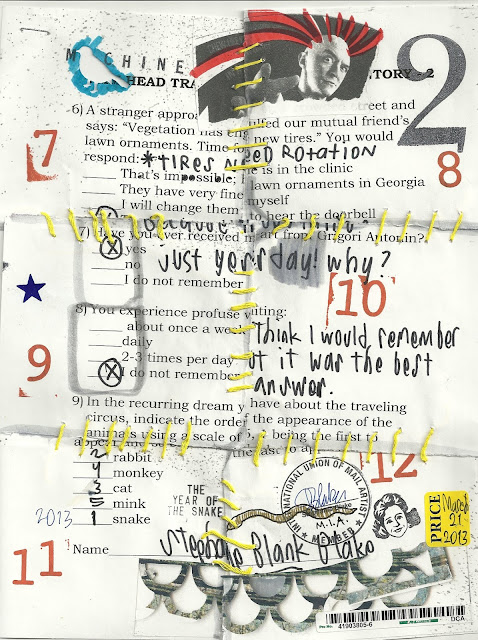 M CHINE
2
HEAD TRA TORY - 2
6) A stranger approa street and
says: "Vegetation has eng lfed our mutual friend's
lawn ornaments. Time fo new tires." You would
respond: *TIRES NEED ROTATION
7
8
That's impossible; e is in the clinic
They have very fine lawn ornaments in Georgia
I will change them myself
to hear the doorbell
7) Have you ever received mail art from Grigori Antonin?
X yes Just yesterday! why?
no
I do not remember
10
8) You experience profuse vomiting:
about once a week
daily
2-3 times per day
X I do not remember
Think I would remember
but it was the best
answer.
9
9) In the recurring dream you have about the traveling
circus, indicate the order of the appearance of the
animals using a scale of being the first to
appear and the last to ap
2 rabbit
4 monkey
3 cat
5 mink
2013 1 snake
THE
YEAR OF
THE SNAKE
12
INTERNATIONAL UNION OF MAIL ARTISTS
M.I.A.
MEMBER
PRICE
March
21
2013
11
Name Stephanie Blank Blako
41903805-6
DCA